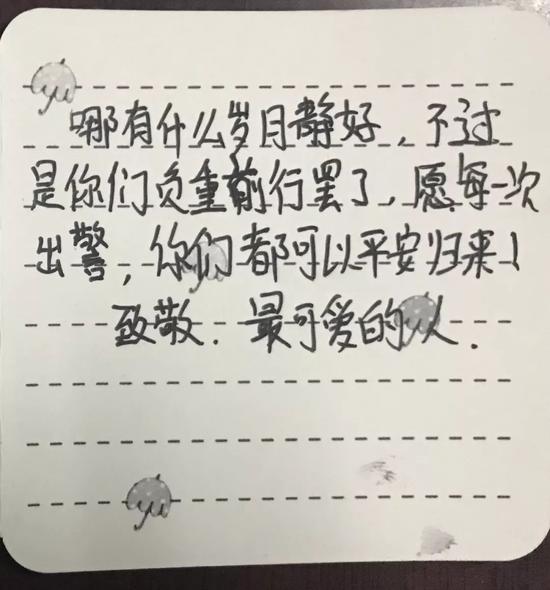 哪有什么岁月静好，不过
是你们负重前行罢了，愿每一次
出警，你们都可以平安归来！
致敬．最可爱的人．